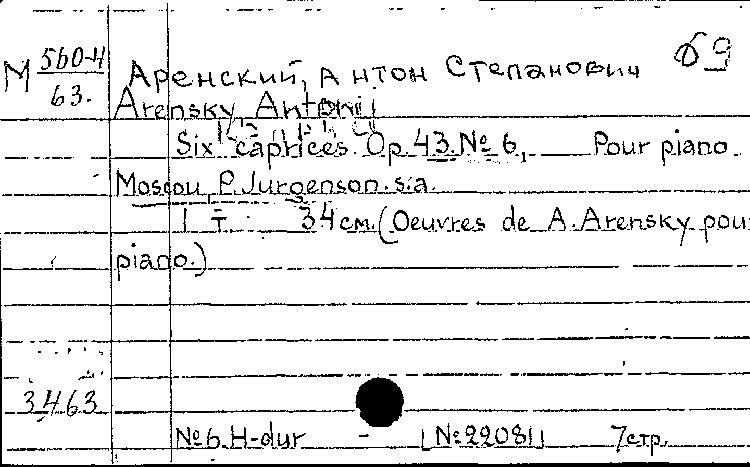 М 560-4/63. Аренский, Антон Степанович б9
Arensky Antonij
Six caprices. Op. 43. № 6, Pour piano.
Moscou, P. Jurgenson. s.a.
1 т. 34 см. (Oeuvres de A. Arensky pour
piano.)
3463
№ 6. H-dur - |№ 22081| 7 стр.